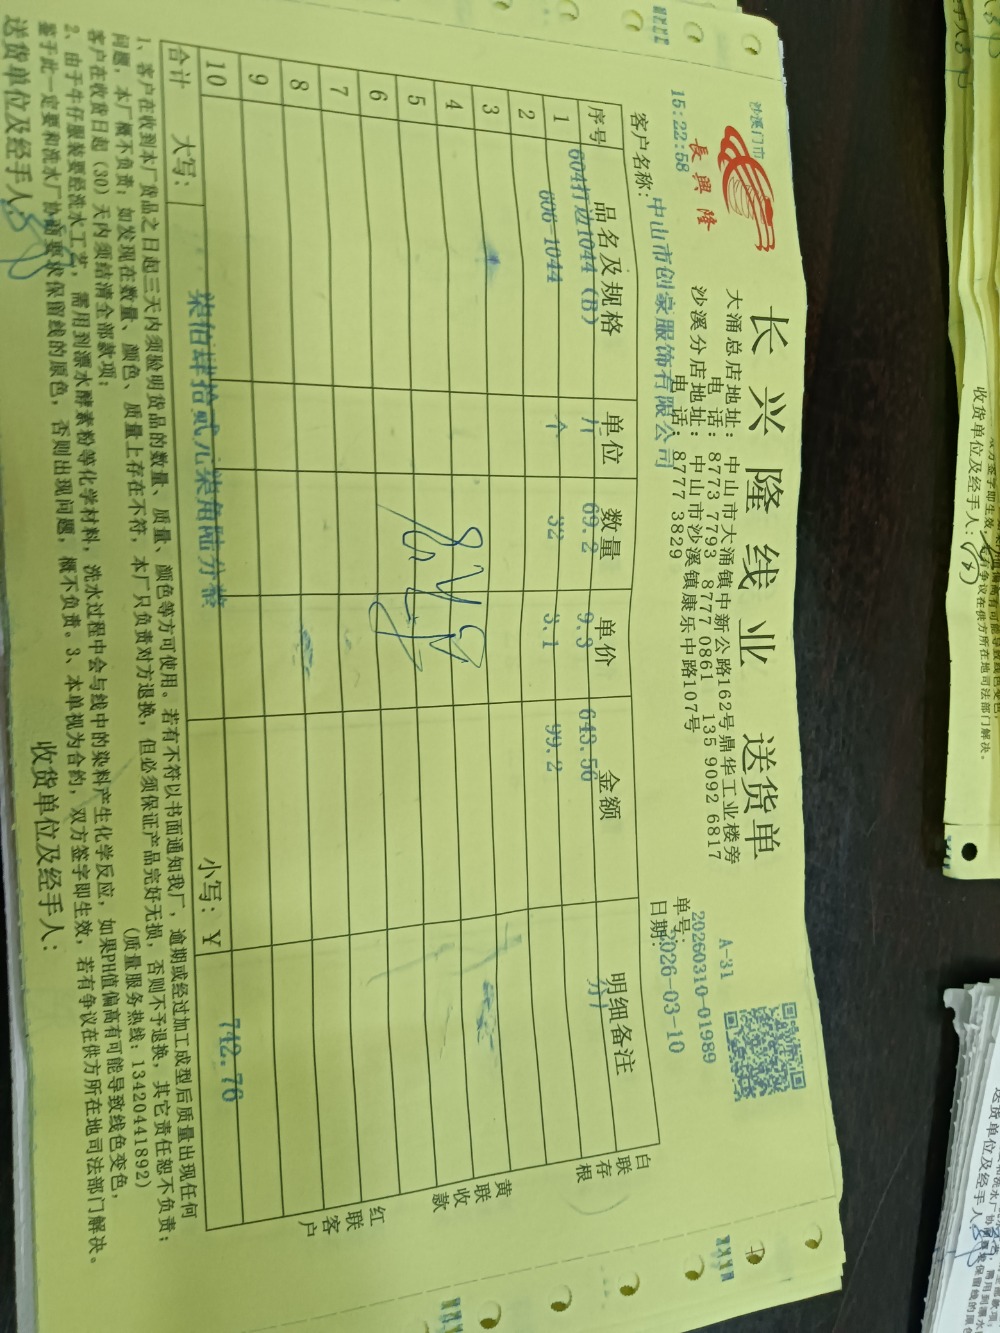 沙溪门市
長興隆
15:22:58
长兴隆线业 送货单
大涌总店地址：中山市大涌镇中新公路162号鼎华工业楼旁
电 话：8773 7793 8777 0861 135 9092 6817
沙溪分店地址：中山市沙溪镇康乐中路107号
电 话：8777 3829
A-31
单号：20260310-01989
日期：2026-03-10
客户名称：中山市创豪服饰有限公司
序号 品名及规格 单位 数量 单价 金额 明细备注
1 604打边1044 (B) 斤 69.2 9.3 643.56
2 606-1044 个 32 3.1 99.2
3
4
5
6
7
8
9
10
合计 大写： 柒佰肆拾贰元柒角陆分整 小写：￥ 742.76
白联存根
黄联收款
红联客户
1、客户在收到本厂货品之日起三天内须验明货品的数量、质量、颜色等方可使用。若有不符以书面通知我厂，逾期或经过加工成型后质量出现任何
问题，本厂概不负责；如发现在数量、颜色、质量上存在不符，本厂只负责对方退换，但必须保证产品完好无损，否则不予退换，其它责任恕不负责；
客户在收货日起（30）天内须结清全部款项； （质量服务热线：13420441892）
2、由于牛仔服装要经洗水工艺，需用到漂水酵素粉等化学材料，洗水过程中会与线中的染料产生化学反应，如果PH值偏高有可能导致线色变色，
鉴于此一定要和洗水厂协商要求保留线的原色，否则出现问题，概不负责。3、本单视为合约，双方签字即生效，若有争议在供方所在地司法部门解决。
送货单位及经手人：
收货单位及经手人：
收货单位及经手人：
送货单位及经手人